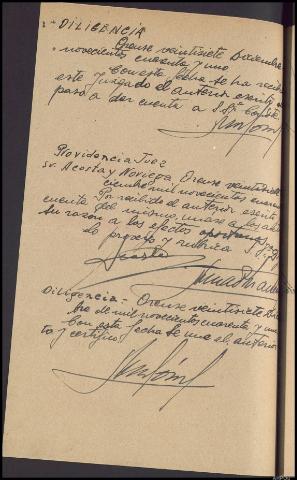 DILIGENCIA
Orense veintisiete Diciembre
novecientos cuarenta y uno
Con esta fecha se ha recibi
este Juzgado el anterior escrito
paso a dar cuenta a S.Sª. Certfº
Providencia Juez
Sr. Acosta y Noriega Orense veintisiete
ciembre mil novecientos cuaren
Por recibido el anterior escrito
cuenta del mismo, unase a los autos
su razon a los efectos oportunos
lo proveyo y rubrica S.Sª
Acosta
Diligencia - Orense veintisiete Diciem
bre de mil novecientos cuarenta y uno
Con esta fecha se une el anterior
to y certifico